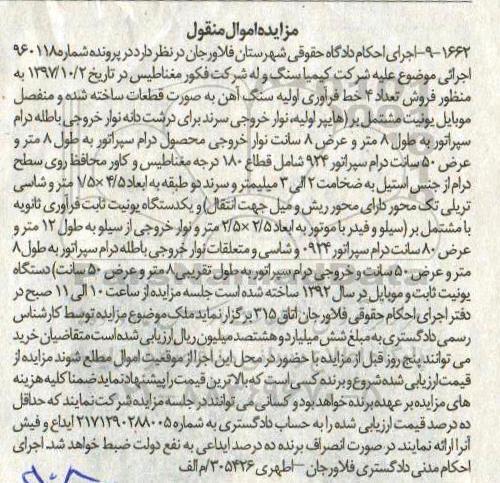 مزایده اموال منقول
۱۶۶۲-۹-اجرای احکام دادگاه حقوقی شهرستان فلاورجان در نظر دارد در پرونده شماره ۹۶۰۱۱۸
اجرائی موضوع علیه شرکت کیمیا سنگ و له شرکت فکور مغناطیس در تاریخ ۱۳۹۷/۱۰/۲ به
منظور فروش تعداد ۴ خط فرآوری اولیه سنگ آهن به صورت قطعات ساخته شده و منفصل
موبایل یونیت مشتمل بر (هاپپر اولیه، نوار خروجی سرند برای درشت دانه نوار خروجی باطله درام
سپراتور به طول ۸ متر و عرض ۸ سانت نوار خروجی محصول درام سپراتور به طول ۸ متر و
عرض ۵۰ سانت درام سپراتور ۹۲۴ شامل قطاع ۱۸۰ درجه مغناطیس و کاور محافظ روی سطح
درام از جنس استیل به ضخامت ۲ الی ۳ میلیمتر و سرند دو طبقه به ابعاد ۴/۵×۱/۷۵ متر و شاسی
تریلی تک محور دارای محور ریش و میل جهت انتقال) و یکدستگاه یونیت ثابت فرآوری ثانویه
با مشتمل بر (سیلو و فیدر با موتور به ابعاد ۲/۵×۲/۵ متر و نوار خروجی از سیلو به طول ۱۲ متر و
عرض ۸۰ سانت درام سپراتور ۰۹۲۴ و شاسی و متعلقات نوار خروجی باطله درام سپراتور به طول ۸
متر و عرض ۵۰ سانت و خروجی درام سپراتور به طول تقریبی ۸ متر و عرض ۵۰ سانت) دستگاه
یونیت ثابت و موبایل در سال ۱۳۹۲ ساخته شده است جلسه مزایده از ساعت ۱۰ الی ۱۱ صبح در
دفتر اجرای احکام حقوقی فلاورجان اتاق ۳۱۵ برگزار نماید ملک موضوع مزایده توسط کارشناس
رسمی دادگستری به مبلغ شش میلیارد و هشتصد میلیون ریال ارزیابی شده است متقاضیان خرید
می توانند پنج روز قبل از مزایده با حضور در محل این اجرا از موقعیت اموال مطلع شوند مزایده از
قیمت ارزیابی شده شروع و برنده کسی است که بالاترین قیمت را پیشنهاد نماید ضمنا کلیه هزینه
های مزایده بر عهده برنده خواهد بود و کسانی می توانند در جلسه مزایده شرکت نمایند که حداقل
ده درصد قیمت ارزیابی شده را به حساب دادگستری به شماره ۲۱۷۱۲۹۰۲۸۸۰۰۵ ایداع و فیش
آنرا ارائه نمایند. در صورت انصراف برنده ده درصد ایداعی به نفع دولت ضبط خواهد شد. اجرای
احکام مدنی دادگستری فلاورجان – اطهری ۳۰۵۴۲۶/م الف